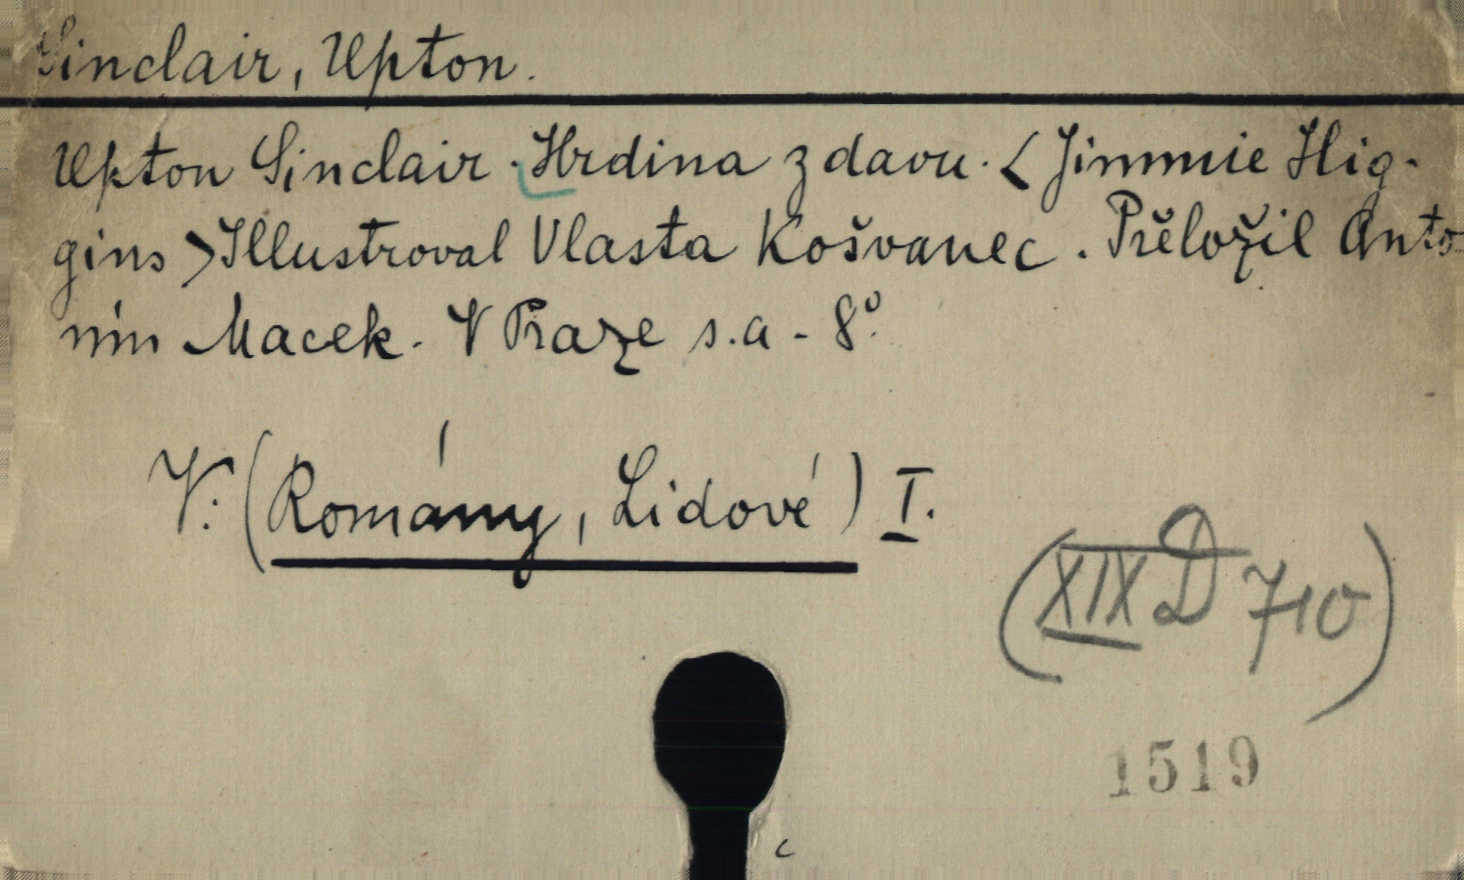 Sinclair, Upton.
Upton Sinclair. Hrdina z davu. <Jimmie Hig-
gins> Illustroval Vlasta Košvanec. Přeložil Anto-
nín Macek. V Praze s.a. - 8°.
V: (Romány, Lidové) I.
(XIX D 710)
1519
c